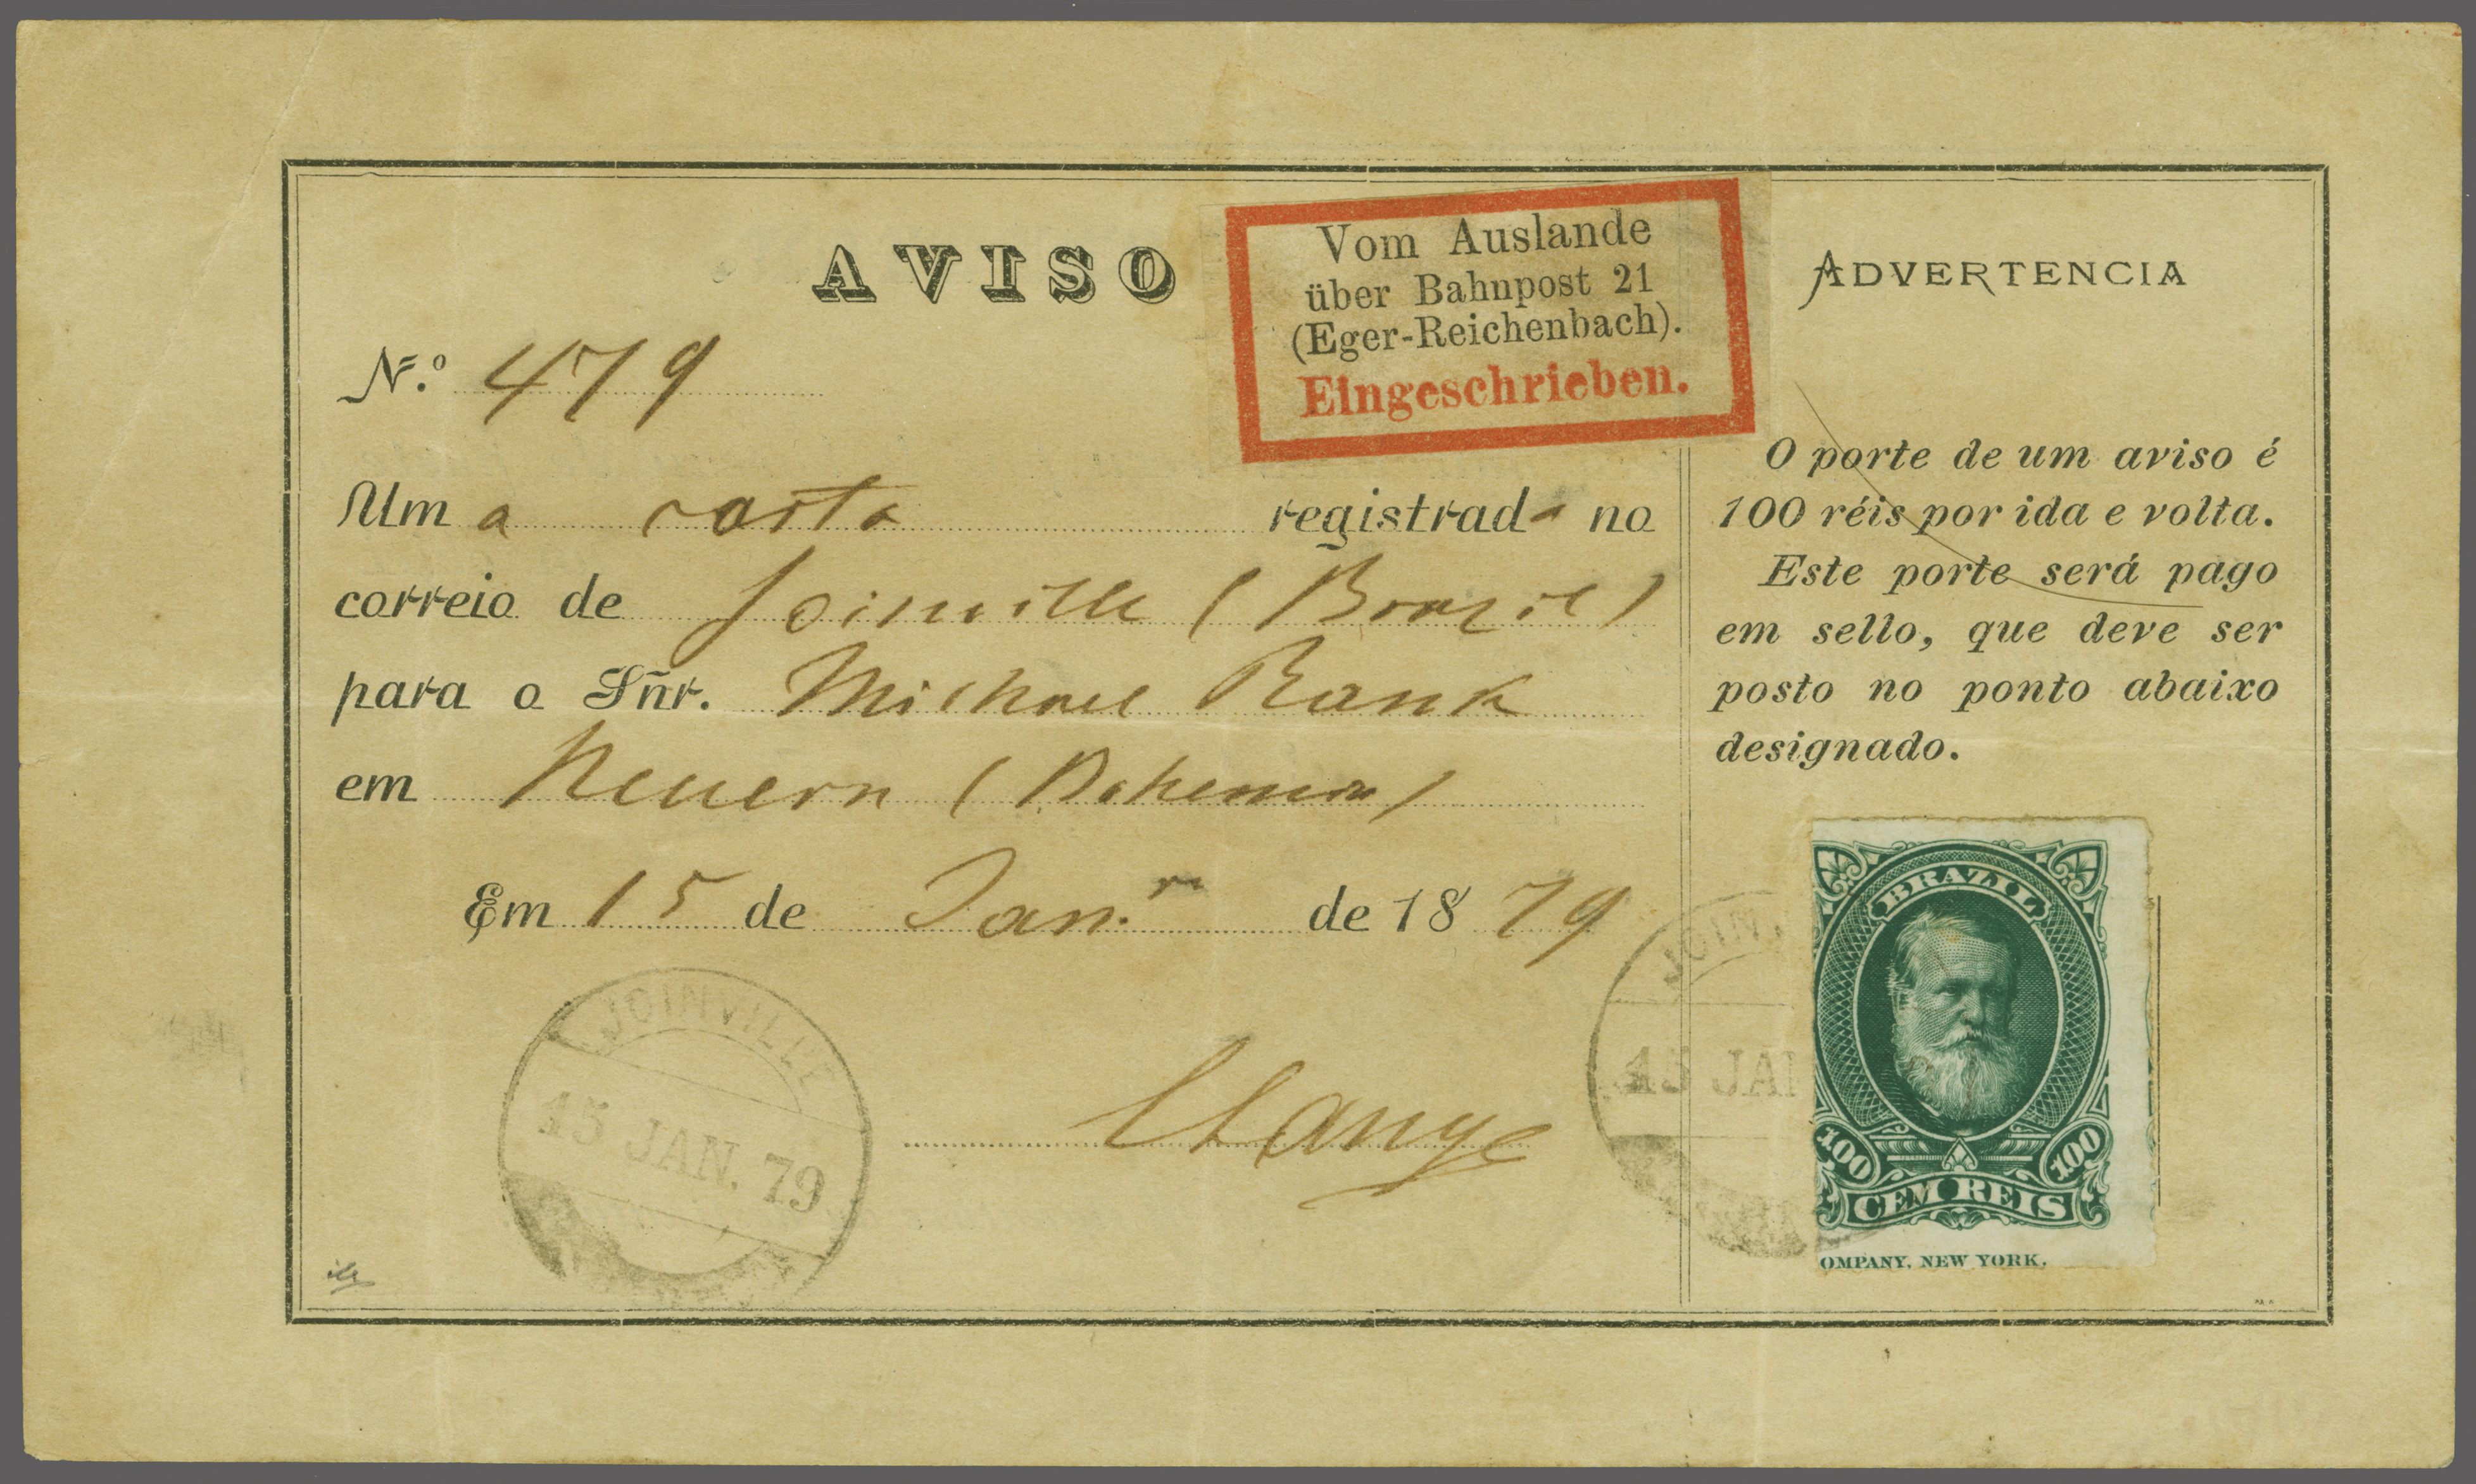 AVISO
Vom Auslande
über Bahnpost 21
(Eger-Reichenbach).
Eingeschrieben.
N.º 479
Um a carta registrada no
correio de Joinville (Brazil)
para o Sñr. Michael Rank
em Neuern (Bohemia)
Em 15 de Jan.ro de 1879
JOINVILLE
15 JAN. 79
ADVERTENCIA
O porte de um aviso é
100 réis por ida e volta.
Este porte será pago
em sello, que deve ser
posto no ponto abaixo
designado.
JOINV
15 JAN
BRAZIL
100 100
CEM REIS
OMPANY, NEW YORK.